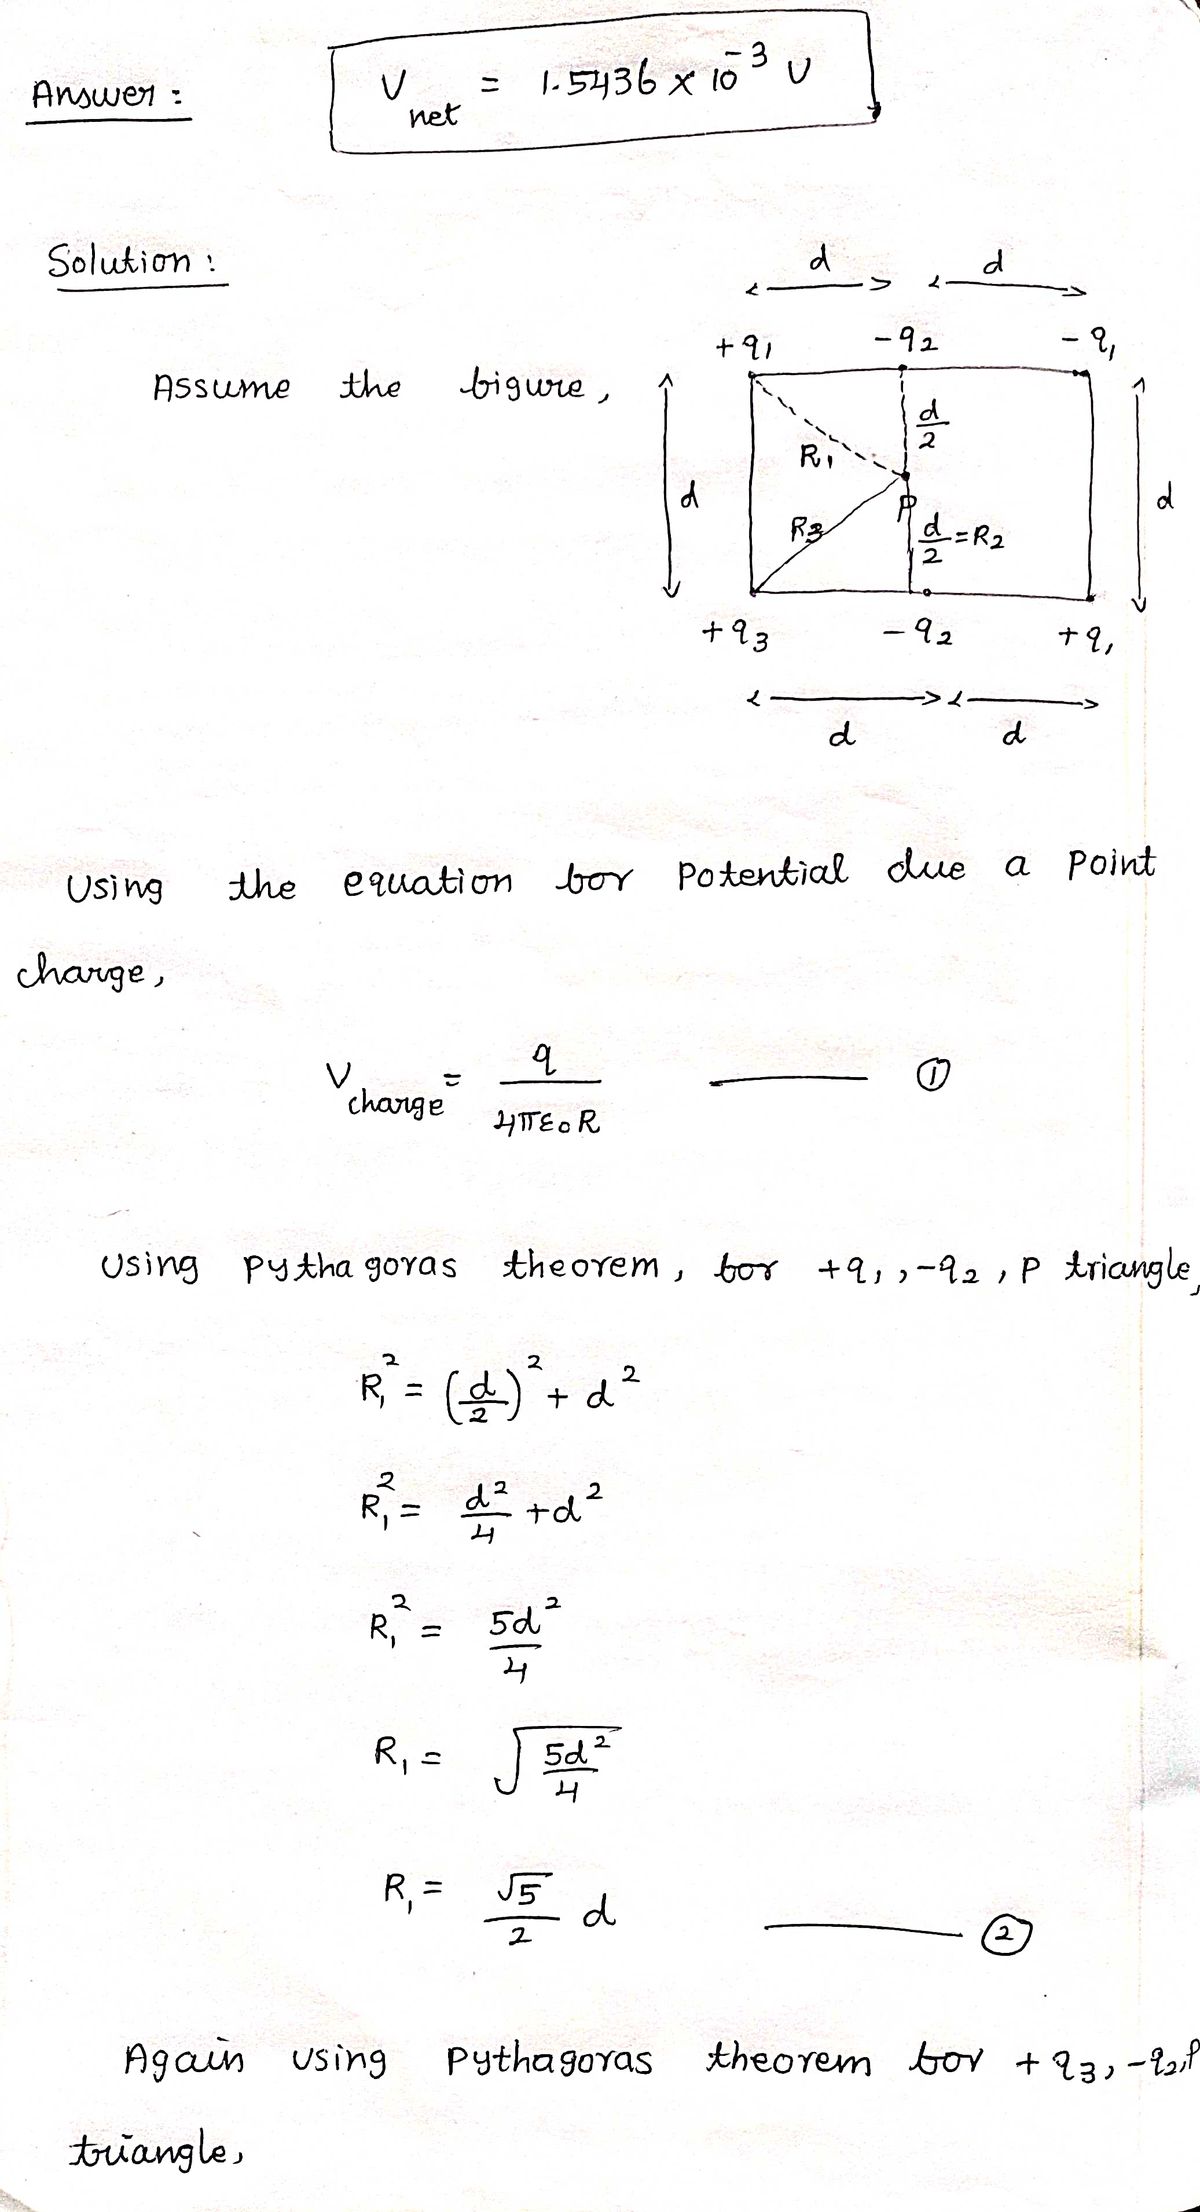 Answer :
V net = 1.5436 x 10^-3 V
Solution :
d d
+q1 -q2 -q1
Assume the figure,
d/2
R1
d P d
R3 d/2 = R2
+q3 -q2 +q1
d d
Using the equation for Potential due a Point
charge,
V charge = q / 4πε0R ——— ①
Using Pythagoras theorem, for +q1, -q2, P triangle,
R1^2 = (d/2)^2 + d^2
R1^2 = d^2/4 + d^2
R1^2 = 5d^2/4
R1 = √(5d^2/4)
R1 = √5/2 d ——— ②
Again using Pythagoras theorem for +q3, -q2, P
triangle,